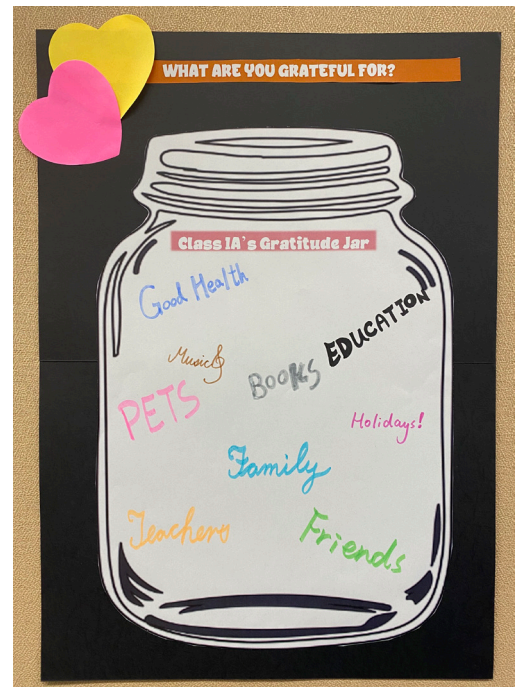 WHAT ARE YOU GRATEFUL FOR?
Class IA's Gratitude Jar
Good Health
EDUCATION
Music
BOOKS
PETS
Holidays!
Family
Teachers
Friends